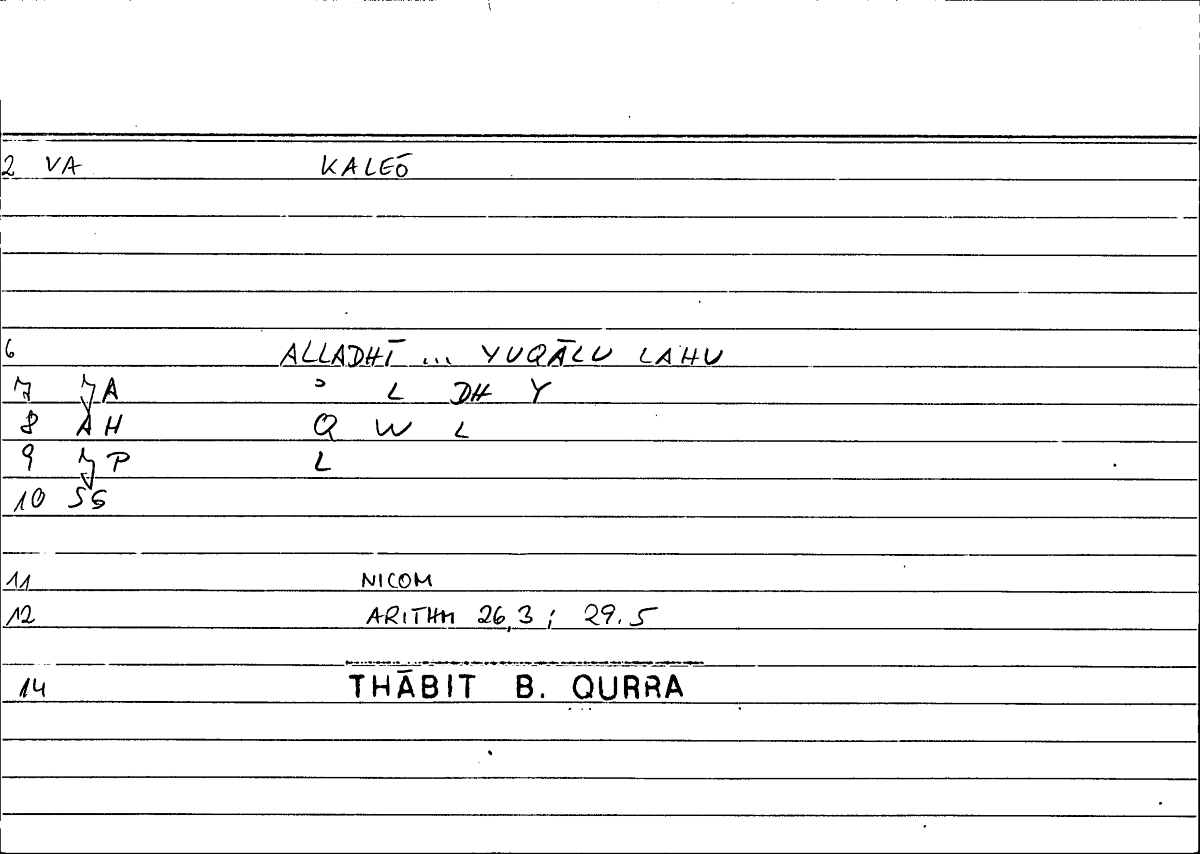 2 VA KALEŌ
6 ALLADHĪ ... YUQĀLU LAHU
7 A ʾ L DH Y
8 AH Q W L
9 P L
10 SS
11 NICOM
12 ARITHM 26,3 ; 29.5
14 THĀBIT B. QURRA